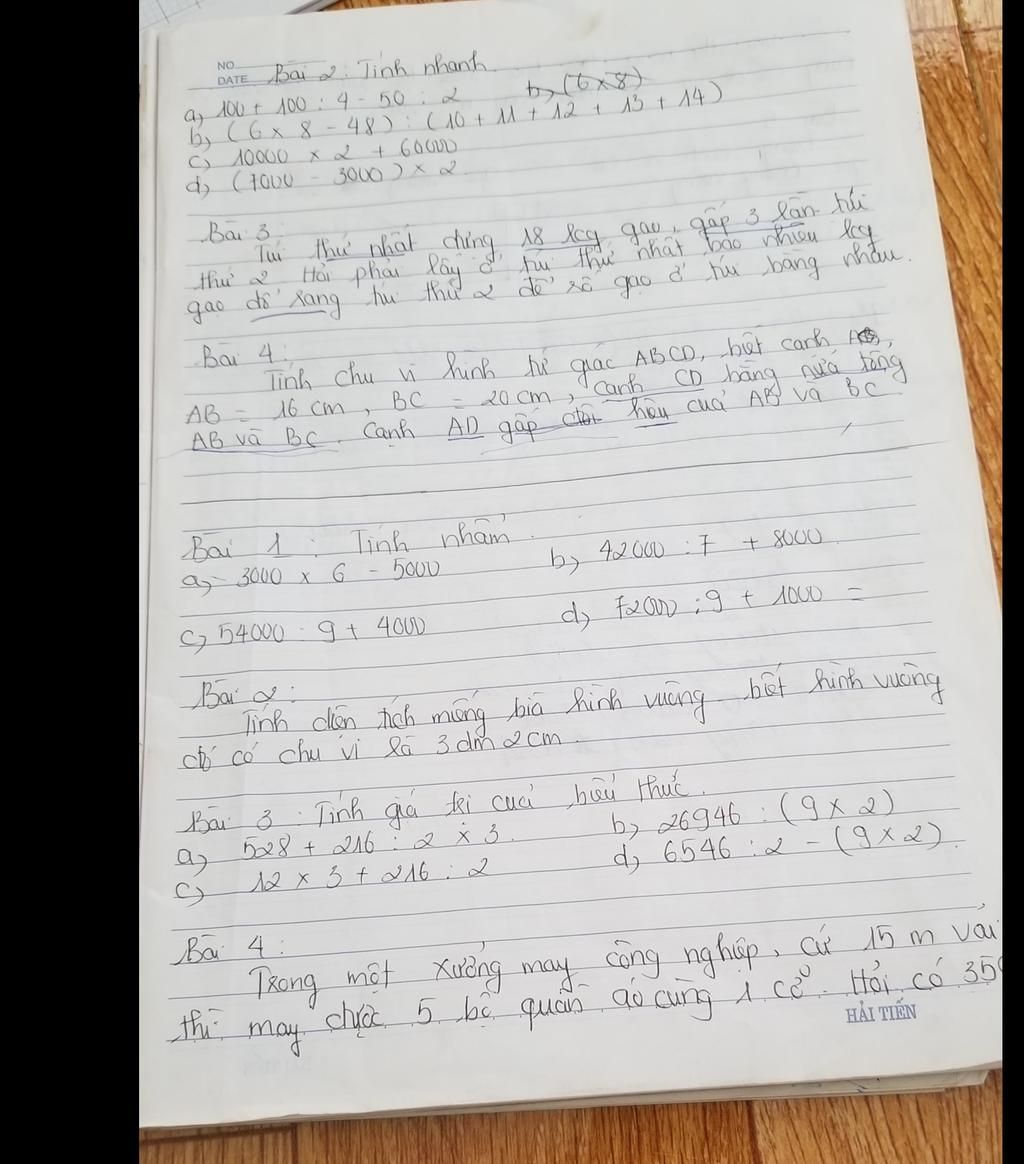 NO.
DATE Bài 2: Tính nhanh
a, 100 + 100 : 4 - 50 : 2 b, (6 x 8)
b, (6 x 8 - 48) : (10 + 11 + 12 + 13 + 14)
c, 10000 x 2 + 60000
d, (7000 - 3000) x 2
Bài 3
Túi thứ nhất đựng 18 kg gạo, gấp 3 lần túi
thứ 2 Hỏi phải lấy ở túi thứ nhất bao nhiêu kg
gạo đổ sang túi thứ 2 để số gạo ở túi bằng nhau.
Bài 4:
Tính chu vi hình tứ giác ABCD, biết cạnh
AB = 16 cm, BC = 20 cm, cạnh CD bằng nửa tổng
AB và BC. Cạnh AD gấp đôi hiệu của AB và BC
Bài 1 : Tính nhẩm
a, 3000 x 6 - 5000 b, 42000 : 7 + 8000
c, 54000 : 9 + 4000 d, 72000 : 9 + 1000 =
Bài 2:
Tính diện tích miếng bìa hình vuông biết hình vuông
đó có chu vi là 3 dm 2 cm
Bài 3 : Tính giá trị của biểu thức.
a, 528 + 216 : 2 x 3. b, 26946 : (9 x 2)
c, 12 x 3 + 216 : 2 d, 6546 : 2 - (9 x 2).
Bài 4 :
Trong một xưởng may công nghiệp, cứ 15 m vải
thì may được 5 bộ quần áo cùng 1 cỡ. Hỏi có 35
HẢI TIẾN